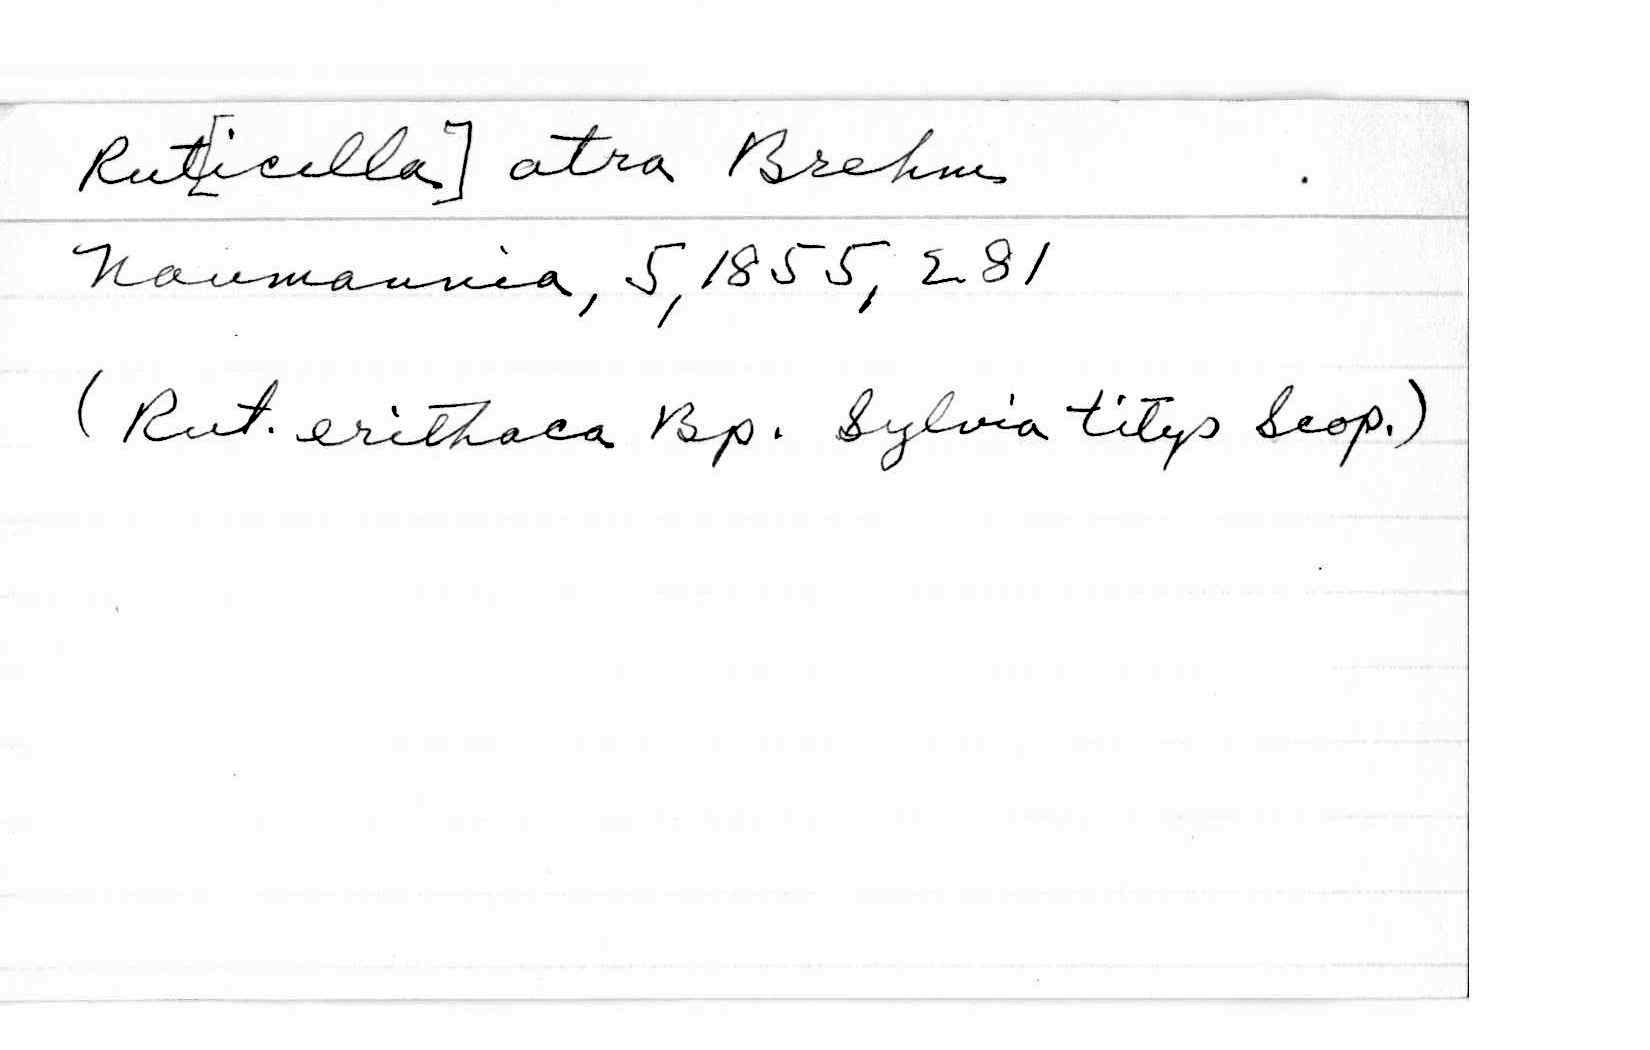 Rut[icilla] atra Brehm
Naumannia, 5, 1855, 281
(Rut. erithaca Bp. Sylvia titys Scop.)